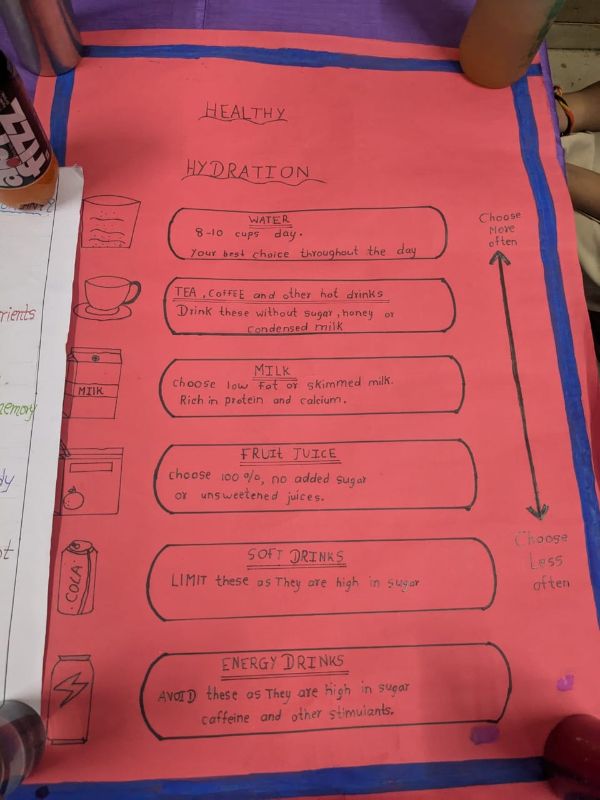 HEALTHY
HYDRATION
WATER
8-10 cups day.
Your best choice throughout the day
TEA, COFFEE and other hot drinks
Drink these without sugar, honey or
condensed milk
MILK
MILK
choose low fat or skimmed milk.
Rich in protein and calcium.
FRUIT JUICE
choose 100%, no added sugar
or unsweetened juices.
COLA
SOFT DRINKS
LIMIT these as They are high in sugar
ENERGY DRINKS
AVOID these as They are high in sugar
caffeine and other stimulants.
Choose
More
often
Choose
Less
often